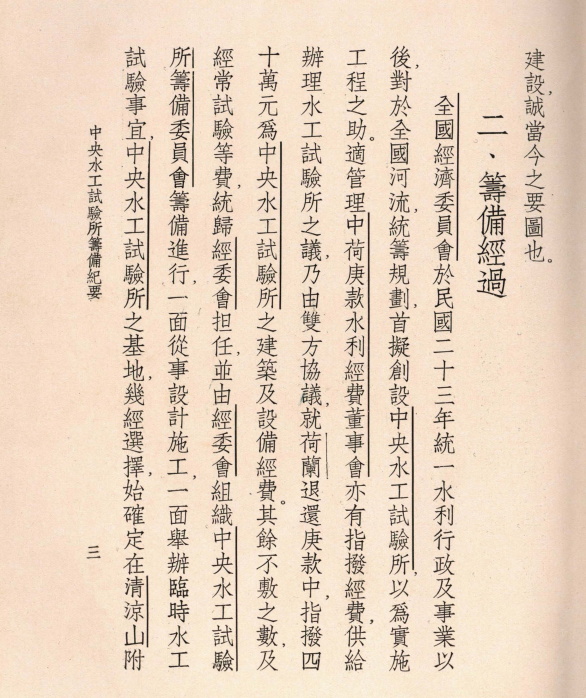 建設，誠當今之要圖也。
二、籌備經過
全國經濟委員會於民國二十三年統一水利行政及事業以
後，對於全國河流，統籌規劃，首擬創設中央水工試驗所，以爲實施
工程之助。適管理中荷庚款水利經費董事會亦有指撥經費，供給
辦理水工試驗所之議，乃由雙方協議，就荷蘭退還庚款中，指撥四
十萬元爲中央水工試驗所之建築及設備經費。其餘不敷之數，及
經常試驗等費，統歸經委會担任，並由經委會組織中央水工試驗
所籌備委員會籌備進行，一面從事設計施工，一面舉辦臨時水工
試驗事宜，中央水工試驗所之基地，幾經選擇，始確定在清涼山附
中央水工試驗所籌備紀要
三